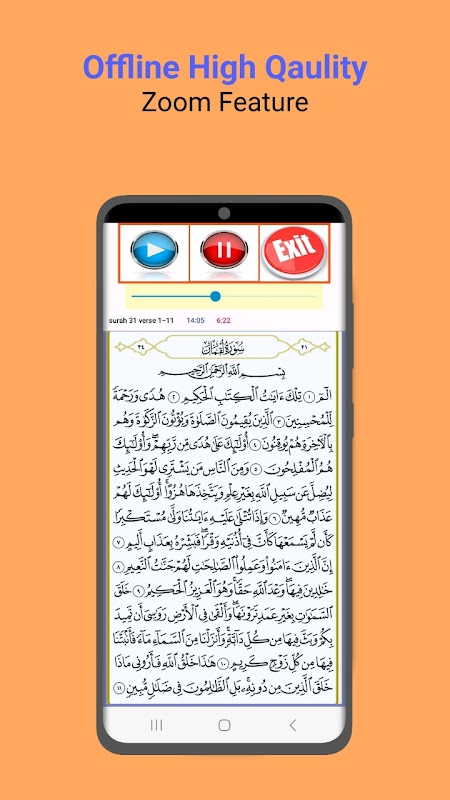 Offline High Qaulity
Zoom Feature
Exit
surah 31 verse 1-11 14:05 6:22
٣٤ سُورَةُ لُقْمَان ٣١
بِسْمِ ٱللَّهِ ٱلرَّحْمَٰنِ ٱلرَّحِيمِ
الٓمٓ ١ تِلْكَ ءَايَٰتُ ٱلْكِتَٰبِ ٱلْحَكِيمِ ٢ هُدًى وَرَحْمَةً
لِّلْمُحْسِنِينَ ٣ ٱلَّذِينَ يُقِيمُونَ ٱلصَّلَوٰةَ وَيُؤْتُونَ ٱلزَّكَوٰةَ وَهُم
بِٱلْأٓخِرَةِ هُمْ يُوقِنُونَ ٤ أُو۟لَٰٓئِكَ عَلَىٰ هُدًى مِّن رَّبِّهِمْ وَأُو۟لَٰٓئِكَ
هُمُ ٱلْمُفْلِحُونَ ٥ وَمِنَ ٱلنَّاسِ مَن يَشْتَرِى لَهْوَ ٱلْحَدِيثِ
لِيُضِلَّ عَن سَبِيلِ ٱللَّهِ بِغَيْرِ عِلْمٍ وَيَتَّخِذَهَا هُزُوًا أُو۟لَٰٓئِكَ لَهُمْ
عَذَابٌ مُّهِينٌ ٦ وَإِذَا تُتْلَىٰ عَلَيْهِ ءَايَٰتُنَا وَلَّىٰ مُسْتَكْبِرًا
كَأَن لَّمْ يَسْمَعْهَا كَأَنَّ فِىٓ أُذُنَيْهِ وَقْرًا فَبَشِّرْهُ بِعَذَابٍ أَلِيمٍ ٧
إِنَّ ٱلَّذِينَ ءَامَنُوا۟ وَعَمِلُوا۟ ٱلصَّٰلِحَٰتِ لَهُمْ جَنَّٰتُ ٱلنَّعِيمِ ٨
خَٰلِدِينَ فِيهَا وَعْدَ ٱللَّهِ حَقًّا وَهُوَ ٱلْعَزِيزُ ٱلْحَكِيمُ ٩ خَلَقَ
ٱلسَّمَٰوَٰتِ بِغَيْرِ عَمَدٍ تَرَوْنَهَا وَأَلْقَىٰ فِى ٱلْأَرْضِ رَوَٰسِىَ أَن تَمِيدَ
بِكُمْ وَبَثَّ فِيهَا مِن كُلِّ دَآبَّةٍ وَأَنزَلْنَا مِنَ ٱلسَّمَآءِ مَآءً فَأَنۢبَتْنَا
فِيهَا مِن كُلِّ زَوْجٍ كَرِيمٍ ١٠ هَٰذَا خَلْقُ ٱللَّهِ فَأَرُونِى مَاذَا
خَلَقَ ٱلَّذِينَ مِن دُونِهِۦ بَلِ ٱلظَّٰلِمُونَ فِى ضَلَٰلٍ مُّبِينٍ ١١